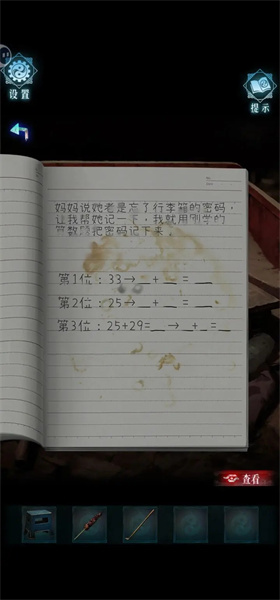 设置
提示
妈妈说她老是忘了行李箱的密码，
让我帮她记一下，我就用刚学的
算数题把密码记下来。
第1位：33→__+__=__
第2位：25→__+__=__
第3位：25+29=__→__+__=__
查看